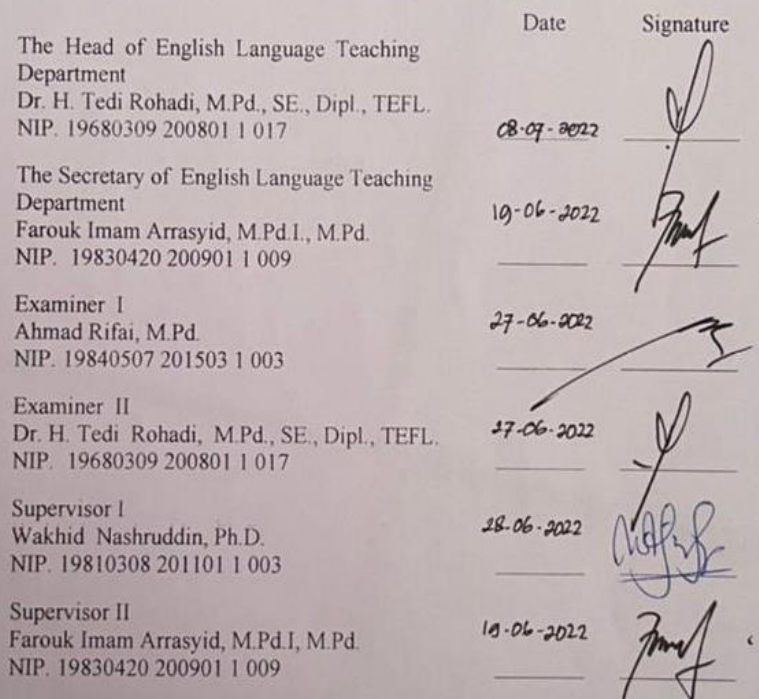 Date Signature
The Head of English Language Teaching
Department
Dr. H. Tedi Rohadi, M.Pd., SE., Dipl., TEFL.
NIP. 19680309 200801 1 017 08-07-2022
The Secretary of English Language Teaching
Department
Farouk Imam Arrasyid, M.Pd.I., M.Pd. 19-06-2022
NIP. 19830420 200901 1 009
Examiner I
Ahmad Rifai, M.Pd. 27-06-2022
NIP. 19840507 201503 1 003
Examiner II
Dr. H. Tedi Rohadi, M.Pd., SE., Dipl., TEFL. 27-06-2022
NIP. 19680309 200801 1 017
Supervisor I
Wakhid Nashruddin, Ph.D. 28-06-2022
NIP. 19810308 201101 1 003
Supervisor II
Farouk Imam Arrasyid, M.Pd.I, M.Pd. 19-06-2022
NIP. 19830420 200901 1 009